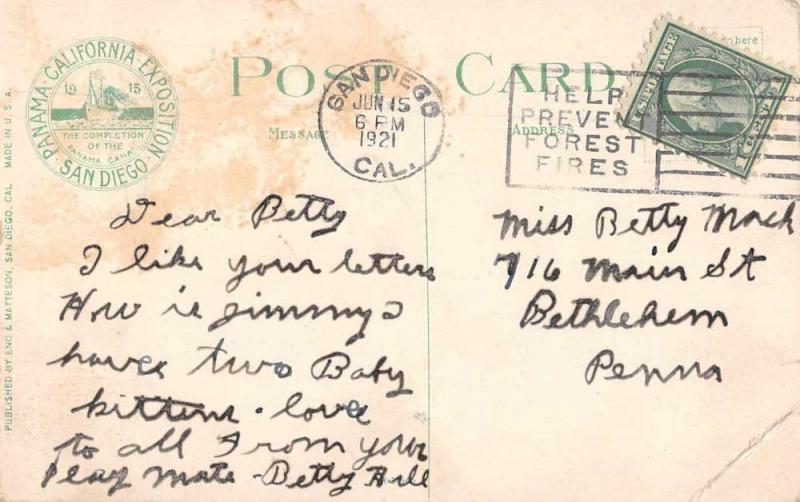 PANAMA·CALIFORNIA·EXPOSITION
1915
THE COMPLETION
OF THE
PANAMA CANAL
SAN DIEGO
POST CARD
here
MESSAGE
ADDRESS
SAN DIEGO
JUN 15
6 PM
1921
CAL.
HELP
PREVENT
FOREST
FIRES
U.S. POSTAGE
PUBLISHED BY ENO & MATTESON, SAN DIEGO, CAL. MADE IN U.S.A.
Dear Betty
I like your letters
How is jimmy I
haves two Baby
kittens. love
to all From your
Play mate - Betty Hill
Miss Betty Mack
716 Main St
Bethlehem
Penna